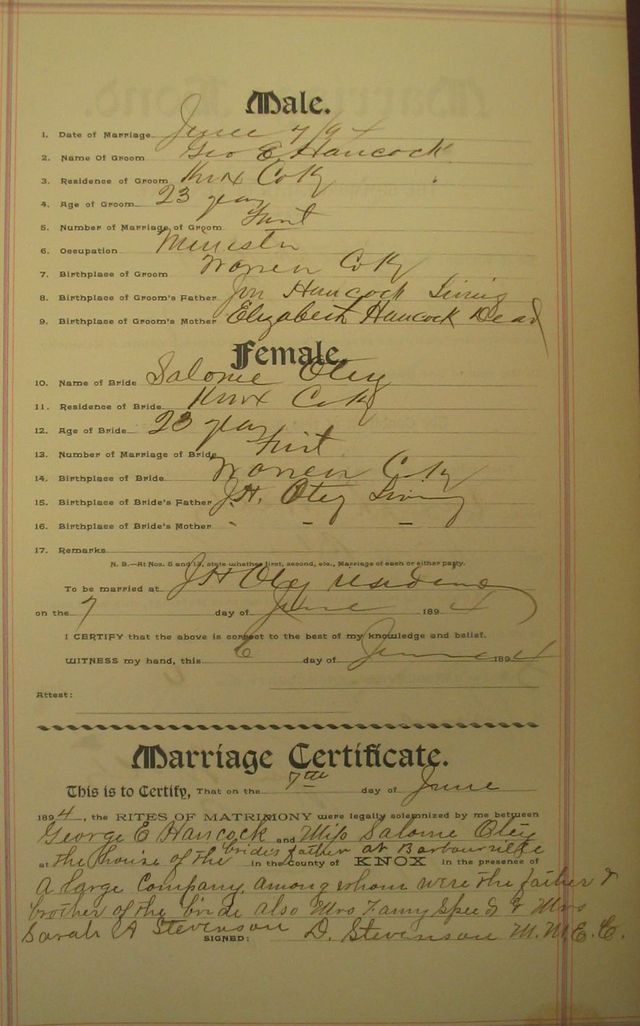 Male.
1. Date of Marriage June 7/94
2. Name Of Groom Geo E Hancock
3. Residence of Groom Knox Co Ky
4. Age of Groom 23 years
5. Number of Marriage of Groom First
6. Occupation Minister
7. Birthplace of Groom Warren Co Ky
8. Birthplace of Groom's Father Hancock Living
9. Birthplace of Groom's Mother Elizabeth Hancock Dead
Female.
10. Name of Bride Salome Otey
11. Residence of Bride Knox Co Ky
12. Age of Bride 23 years
13. Number of Marriage of Bride First
14. Birthplace of Bride Warren Co Ky
15. Birthplace of Bride's Father J.H. Otey Living
16. Birthplace of Bride's Mother - - -
17. Remarks
N. B.—At Nos. 5 and 13, state whether first, second, etc., Marriage of each or either party.
To be married at J H Otey residence
on the 7 day of June 1894
I CERTIFY that the above is correct to the best of my knowledge and belief.
WITNESS my hand, this 6 day of June 1894
Attest:
Marriage Certificate.
This is to Certify, That on the 7th day of June
1894, the RITES OF MATRIMONY were legally solemnized by me between
George E Hancock and Miss Salome Otey
at the house of the bride's father at Barbourville in the County of KNOX in the presence of
A large Company, among whom were the father &
brother of the bride also Mrs Fanny Speed & Mrs
Sarah A Stevenson SIGNED: D. Stevenson M. M.E.C.